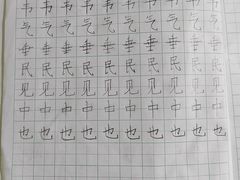 气 气 气 气 气 气 气 气 气 气
垂 垂 垂 垂 垂 垂 垂 垂 垂 垂
民 民 民 民 民 民 民 民 民 民
见 见 见 见 见 见 见 见 见 见
中 中 中 中 中 中 中 中 中 中
也 也 也 也 也 也 也 也 也 也